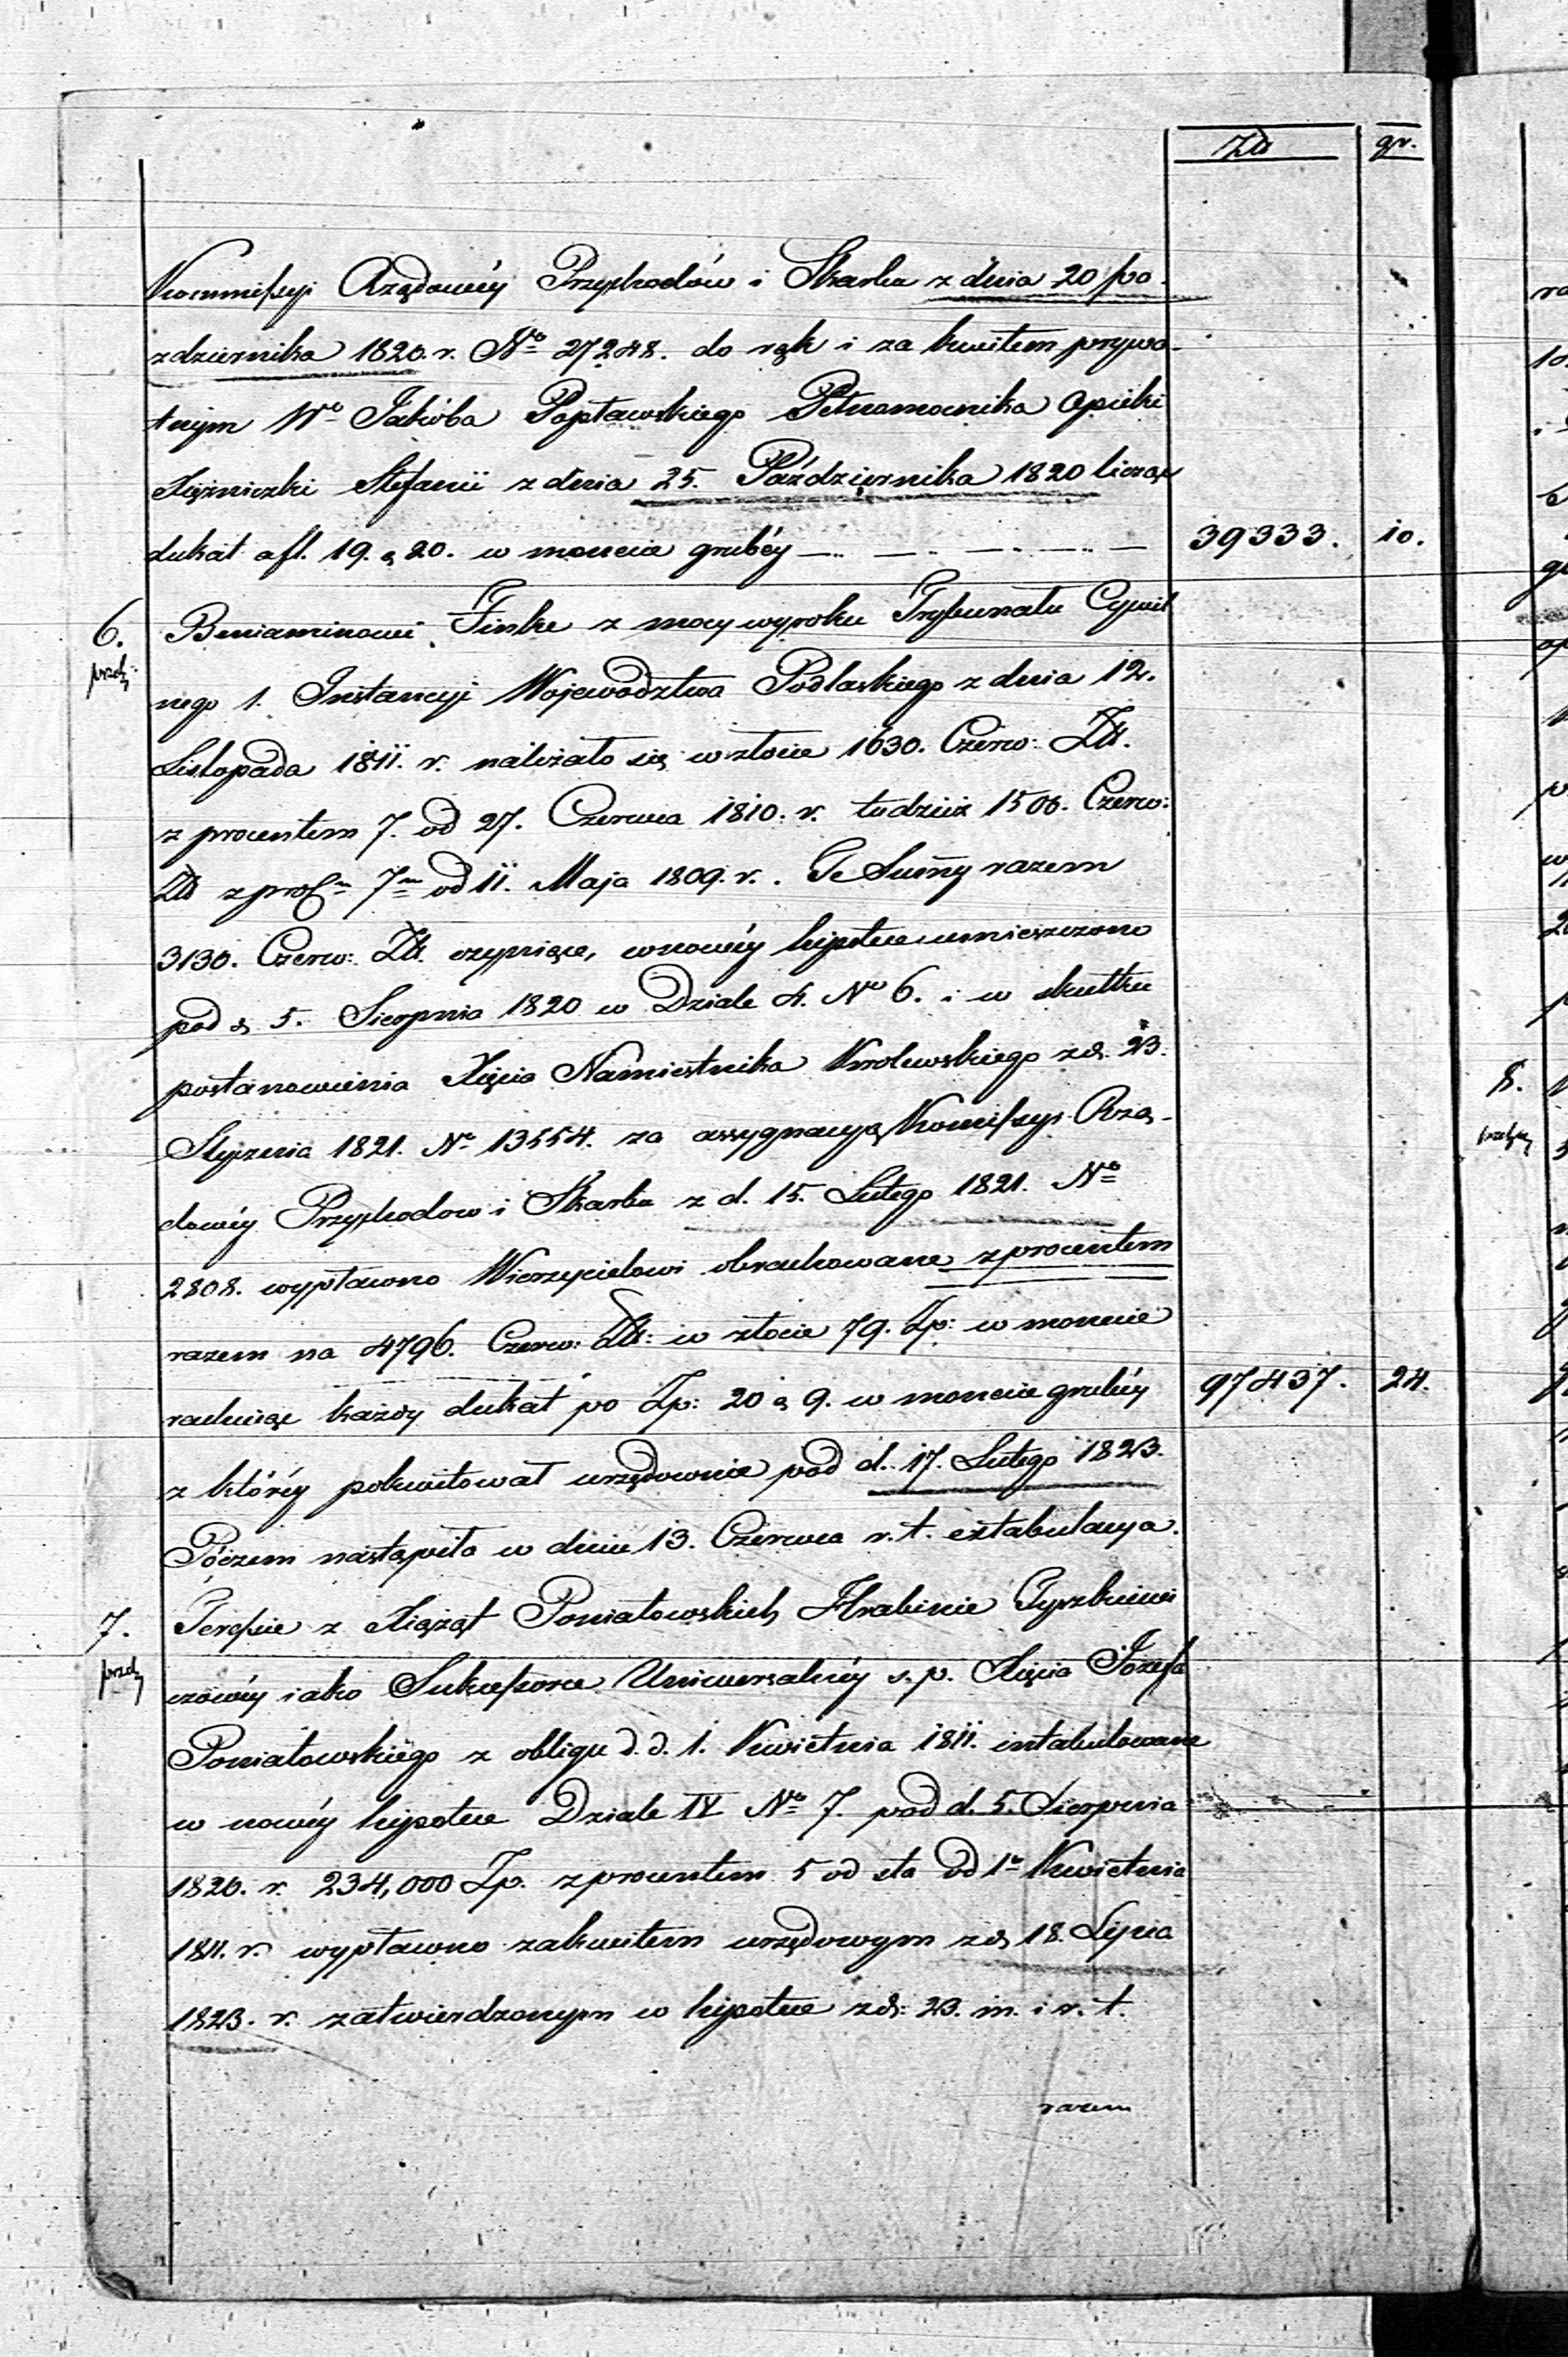 Zł gr.
Kommissyi Rządowéy Przychodów i Skarbu z dnia 20 pa-
zdziernika 1820. r. No 27248. do rąk i za kwitem prywa-
tnym Wo Jakóba Popławskiego Pełnomocnika Opieki
Xiężniczki Stefanii z dnia 25. Października 1820 licząc
dukat a fl. 19. g 20. w monecie grubéy — — — — — 39333. 10.
6. Beniaminowi Finke z mocy wyroku Trybunału Cywil
nego 1. Instancyi Województwa Podlaskiego z dnia 12.
Listopada 1811. r. należało się w złocie 1630. Czerw: Zł.
z procentem 7. od 27. Czerwca 1810. r. tudzież 1500. Czerw:
Zł z proc 7m od 11. Maja 1809. r. Te Summy razem
3130. Czerw: Zł. czyniące, w nowéy hipotece umieszczone
pod d. 5. Sierpnia 1820 w Dziale 4. No 6. i w skutku
postanowienia Xięcia Namiestnika Krolewskiego z d. 23.
Stycznia 1821. No 13554. za assygnacyą Komissyi Rzą-
dowéy Przychodow i Skarbu z d. 15. Lutego 1821. No
2808. wypłacono Wierzycielowi obrachowane z procentem
razem na 4796. Czerw: Zł: w złocie 79. Zp: w monecie
rachując każdy dukat po Zp: 20 g 9. w monecie grubéy 97437. 24.
z któréy pokwitował urzędownie pod d. 17. Lutego 1823.
Poczem nastąpiła w dniu 13. Czerwca r. t. extabulacya.
7. Teressie z Xiążąt Poniatowskich Hrabinie Tyszkiewi
czowéy iako Sukcessorce Uniwersalnéy s. p. Xięcia Józefa
Poniatowskiego z obligu d. d. 1. Kwietnia 1811. intabulowane
w nowéy hipotece Dziale IV No 7. pod d. 5. Sierpnia
1820. r. 234,000 Zp. z procentem 5 od sta od 1o Kwietnia
1811. r. wypłacono za kwitem urzędowym z d. 18. Lipca
1823. r. zatwierdzonym w hipotece z d: 23. m. i r. t.
razem